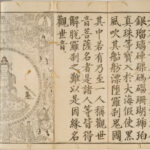 銀瑠璃硨磲碼碯珊瑚琥珀
真珠等寶入於大海假使黑
風吹其船舫漂墮羅剎鬼國
其中若有乃至一人稱觀世
音菩薩名者是諸人等皆得
解脫羅剎之難以是因緣名
觀世音